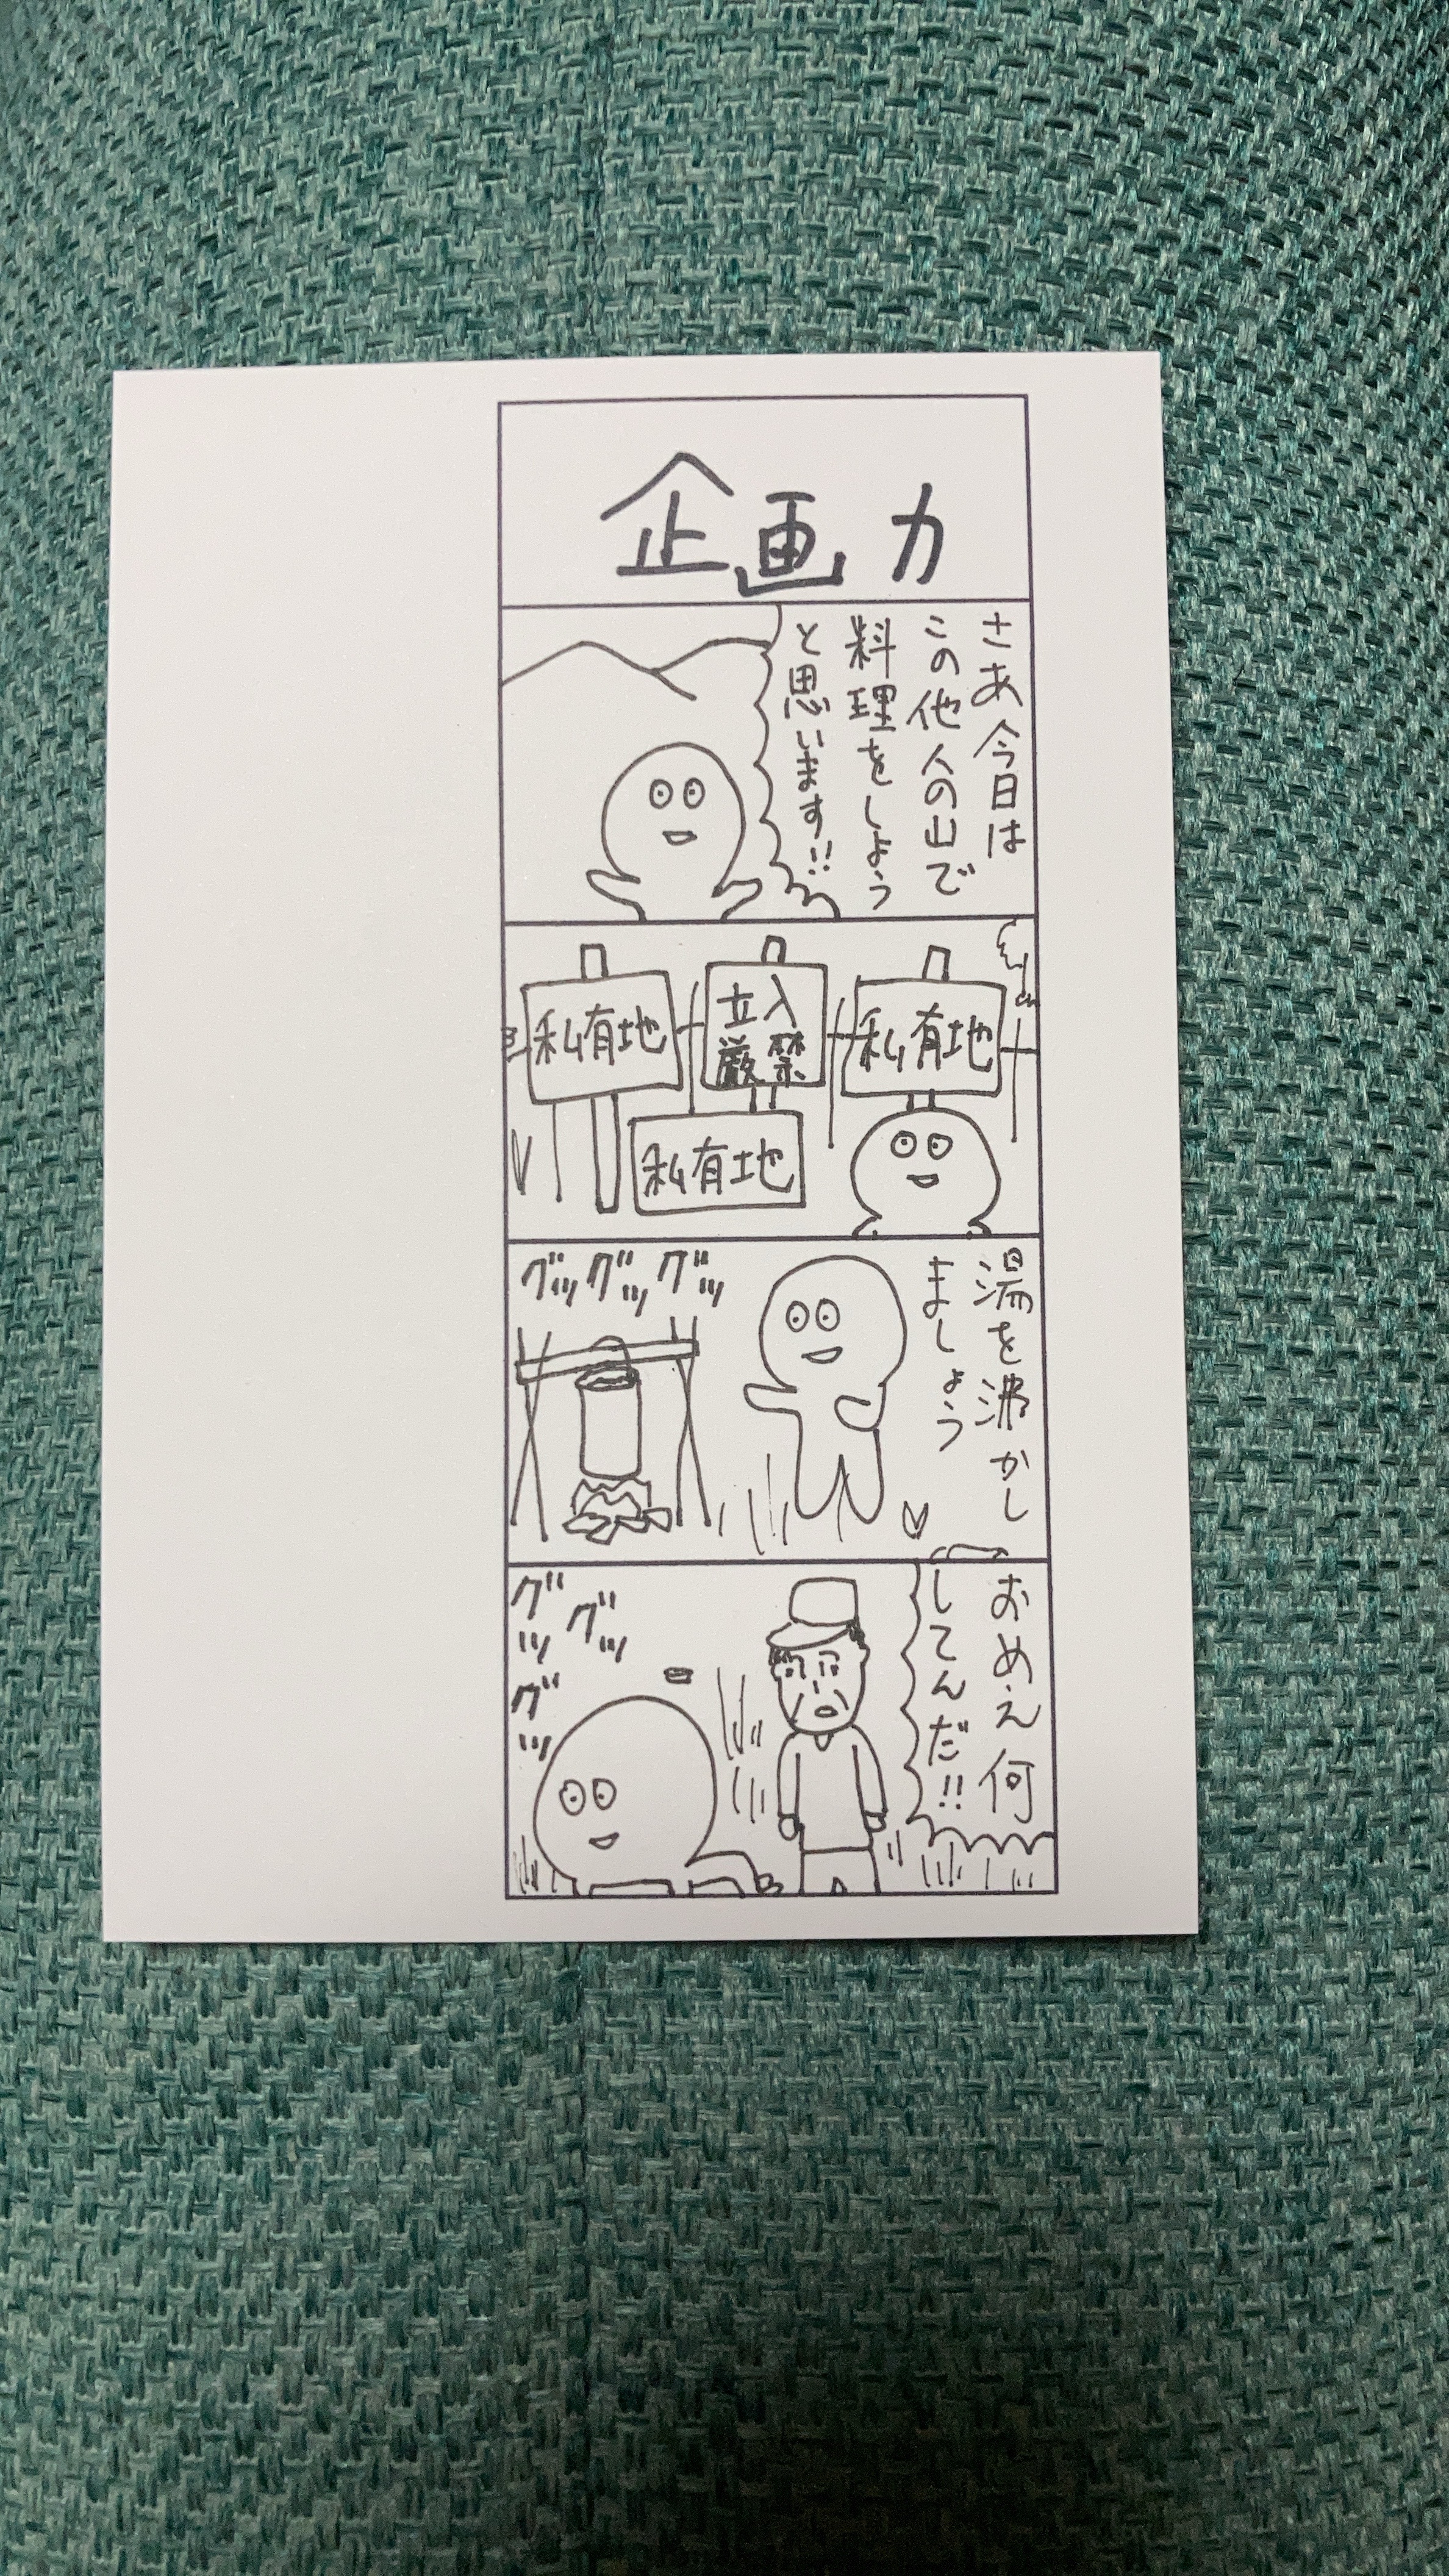 企画力
さあ今日は
この他人の山で
料理をしよう
と思います!!
私有地
立入
厳禁
私有地
私有地
湯を沸かし
ましょう
グッグッグッ
おめえ何
してんだ!!
グッ
グッ
グッ